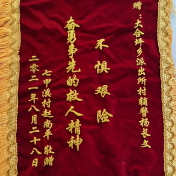 赠：大合坪乡派出所村辅警杨长文
不惧艰险
奋勇争先的救人精神
七甲溪村赵尚平敬赠
二零二一年八月二十八日